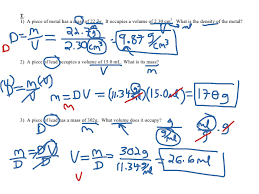 1) A piece of metal has a mass of 22.7g. It occupies a volume of 2.30 cm³. What is the density of the metal?
D D = m/V = 22.7g / 2.30 cm³ = 9.87 g/cm³
2) A piece of lead occupies a volume of 15.0 mL. What is its mass?
m = DV = (11.34 g/ml)(15.0 ml) = 170 g
m
3) A piece of lead has a mass of 302g. What volume does it occupy?
D
m/D = DV/D V = m/D = 302g / 11.34 g/ml = 26.6 ml
V